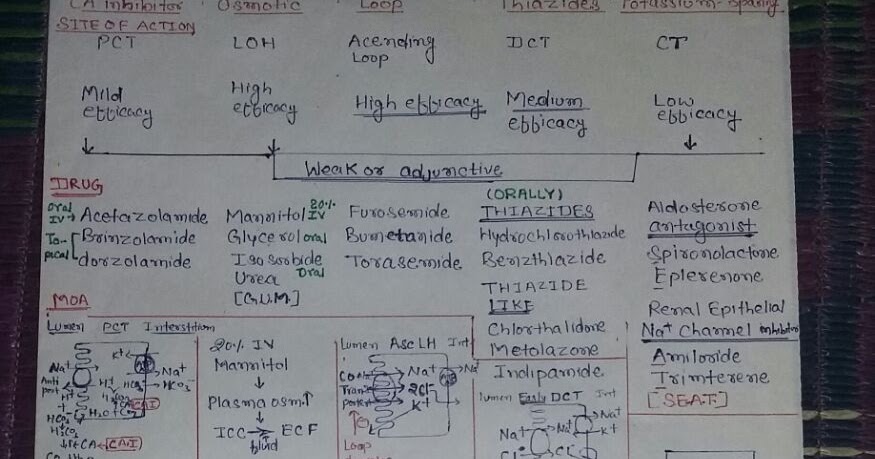 CA Inhibitor Osmotic Loop Thiazides Potassium-Sparing
SITE OF ACTION
PCT LOH Acending Loop DCT CT
Mild efficacy High efficacy High efficacy Medium efficacy Low efficacy
Weak or adjunctive
DRUG
Oral IV Acetazolamide
Topical Brinzolamide
dorzolamide
Mannitol 20% IV
Glycerol oral
Isosorbide Oral
Urea
[G.U.M.]
Furosemide
Bumetanide
Torasemide
(ORALLY)
THIAZIDES
Hydrochlorothiazide
Benzthiazide
THIAZIDE
LIKE
Chlorthalidone
Metolazone
Indipamide
Aldosterone
antagonist
Spironolactone
Eplerenone
Renal Epithelial
Na+ Channel inhibitor
Amiloride
Trimterene
[SEAT]
MOA
Lumen PCT Interstitium
K+
Na+ Na+
Anti port H+ HCO3- HCO3-
H2O + CO2 CAI
HCO3-
H2CO3
CA CAI
20% IV
Mannitol
Plasma osm↑
ICC → ECF
fluid
Lumen Asc LH Int
Co Na+ Na+
Trans 2Cl-
porter K+
Loop
lumen Early DCT Int
Na+
Na+ K+
Cl- Cl-